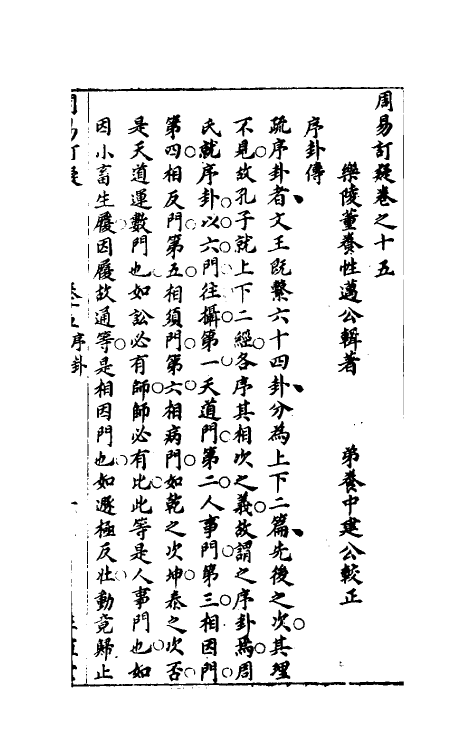 周易訂疑卷之十五
樂陵董養性邁公輯著　弟養中建公較正
序卦傳
疏序卦者文王既繫六十四卦分為上下二篇先後之次其理
不見故孔子就上下二經各序其相次之義故謂之序卦焉周
氏就序卦以六門往攝第一天道門第二人事門第三相因門
第四相反門第五相須門第六相病門如乾之次坤泰之次否
是天道運數門也如訟必有師師必有比此等是人事門也如
因小畜生履因履故通等是相因門也如遯極反壯動竟歸止
周易訂疑　卷十五序卦　一